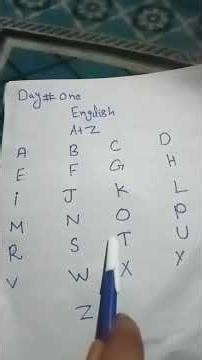 Day# One
English
A to Z
A B C D
E F G H
i J K L
M N O P
R S T U
V W X Y
Z